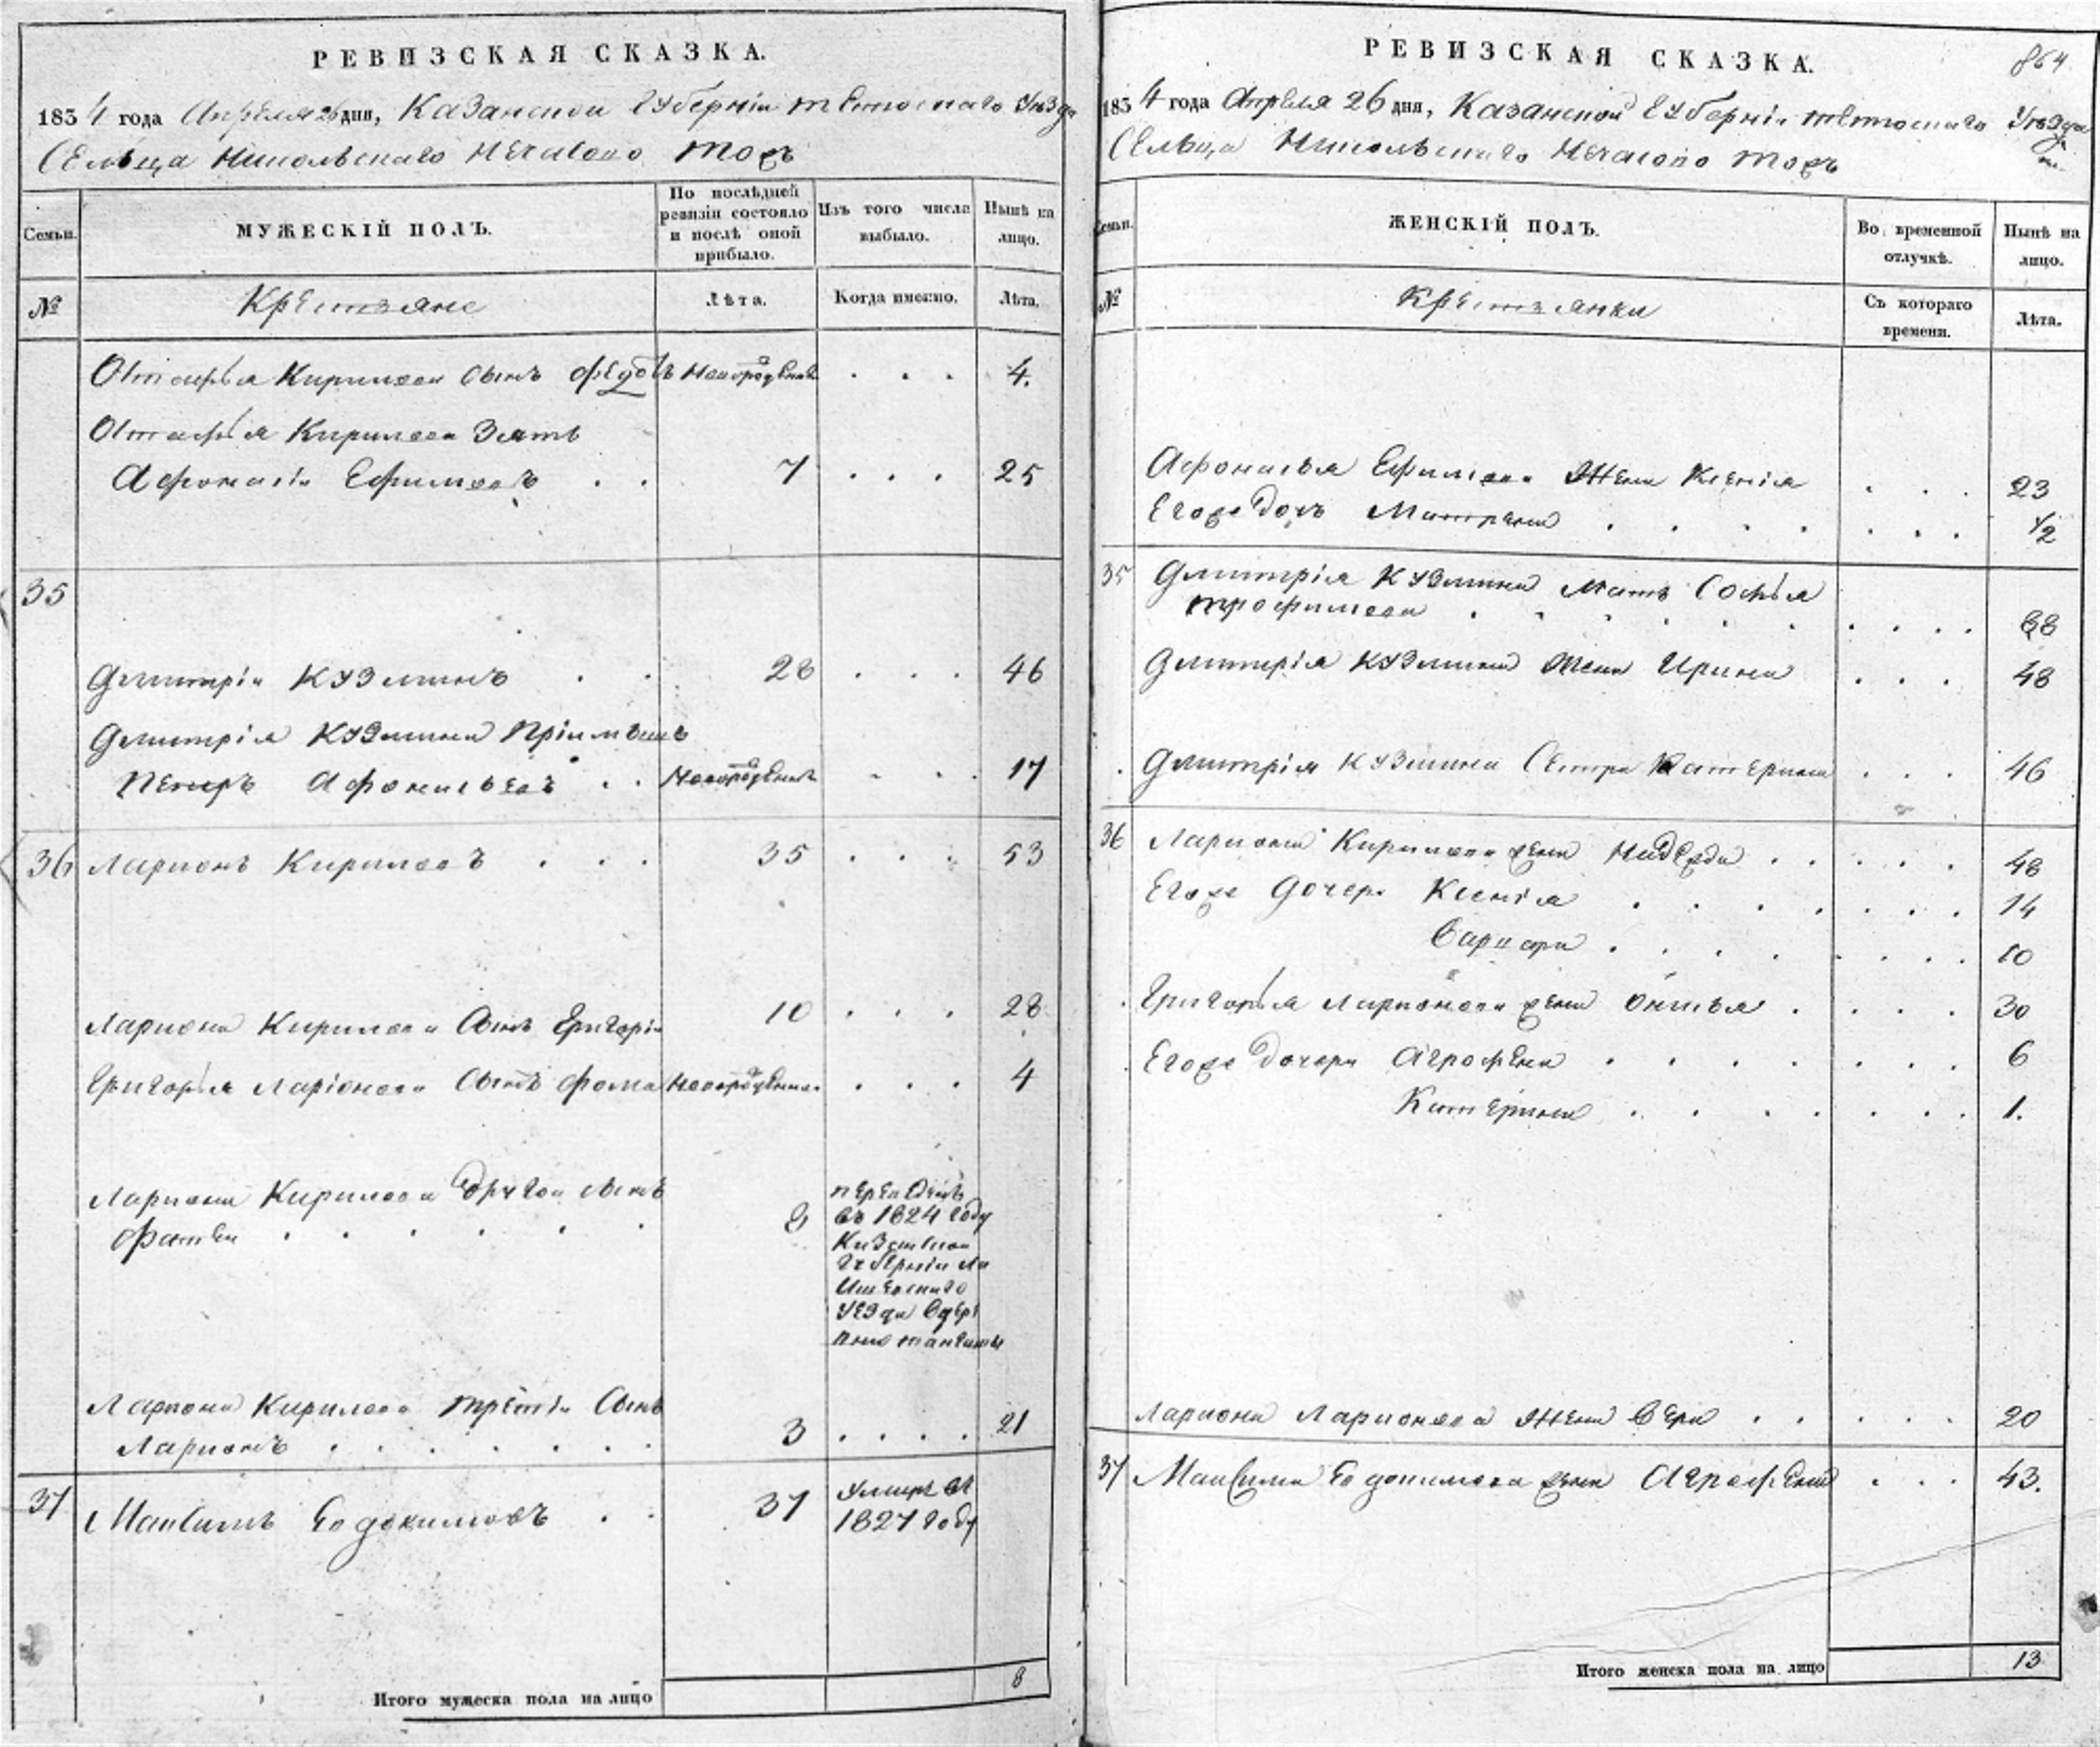 РЕВИЗСКАЯ СКАЗКА.
1834 года Апреля 26 дня, Казанской Губерніи Тетюскаго Уѣзда
Сельца Никольскаго Нечасово тожъ
Семьи.
МУЖЕСКІЙ ПОЛЪ.
По послѣдней ревизіи состояло и послѣ оной прибыло.
Изъ того числа выбыло.
Нынѣ на лицо.
№
Крестьяне
Лѣта.
Когда именно.
Лѣта.
Кирилова сынъ Федотъ Новорожденъ . . . 4.
Кирилова Зять
Афонасіи Ефимовъ . . 7 . . . 25
35
Дмитріи Кузминъ . . 28 . . . 46
Дмитрія Кузмина Пріимышъ
Петръ Афонасьевъ . . Новорожденъ . . . 17
36 Ларионъ Кириловъ . . . 35 . . . 53
Лариона Кирилова Сынъ Григоріи 10 . . . 28
Григорья Ларіонова Сынъ Фома Новорожденъ . . . 4
Лариона Кирилова другои сынъ
Фатеи . . . . . . 8
переведенъ
въ 1824 году
Казанской
Губерніи Ла
ишевскаго
уезда вдер
Лариона Кирилова третіи Сынъ
Ларионъ . . . . . . 3 . . . . 21
37 Максимъ Евдокимовъ . . 37 Умиръ въ
1827 году
Итого мужеска пола на лицо 8
РЕВИЗСКАЯ СКАЗКА.
864
1834 года Апреля 26 дня, Казанской Губерніи Тетюскаго Уѣзда
Сельца Никольскаго Нечасово тожъ
Семьи.
ЖЕНСКІЙ ПОЛЪ.
Во временной отлучкѣ.
Нынѣ на лицо.
№
Крестьянки
Съ котораго времени.
Лѣта.
Афонасья Ефимова Жена Ксенія . . . 23
Егоже Дочь Матрена . . . . . . . 1/2
35 Дмитрія Кузмина Мать Софья
Трофимова . . . . . . . . . . 68
Дмитрія Кузмина Жена Ирина . . . 48
Дмитрія Кузмина Сестра Катерина . . . 46
36 Лариона Кирилова жена Надежда . . . . . 48
Егоже Дочери Ксенія . . . . . . . 14
Варвара . . . . . . . . 10
Григорья Ларионова жена Онисья . . . . 30
Егоже Дочери Аграфена . . . . . . . 6
Катерина . . . . . . . 1.
Лариона Ларионова Жена Вера . . . . . 20
37 Максима Евдокимова жена Аграфена . . . 43.
Итого женска пола на лицо 13